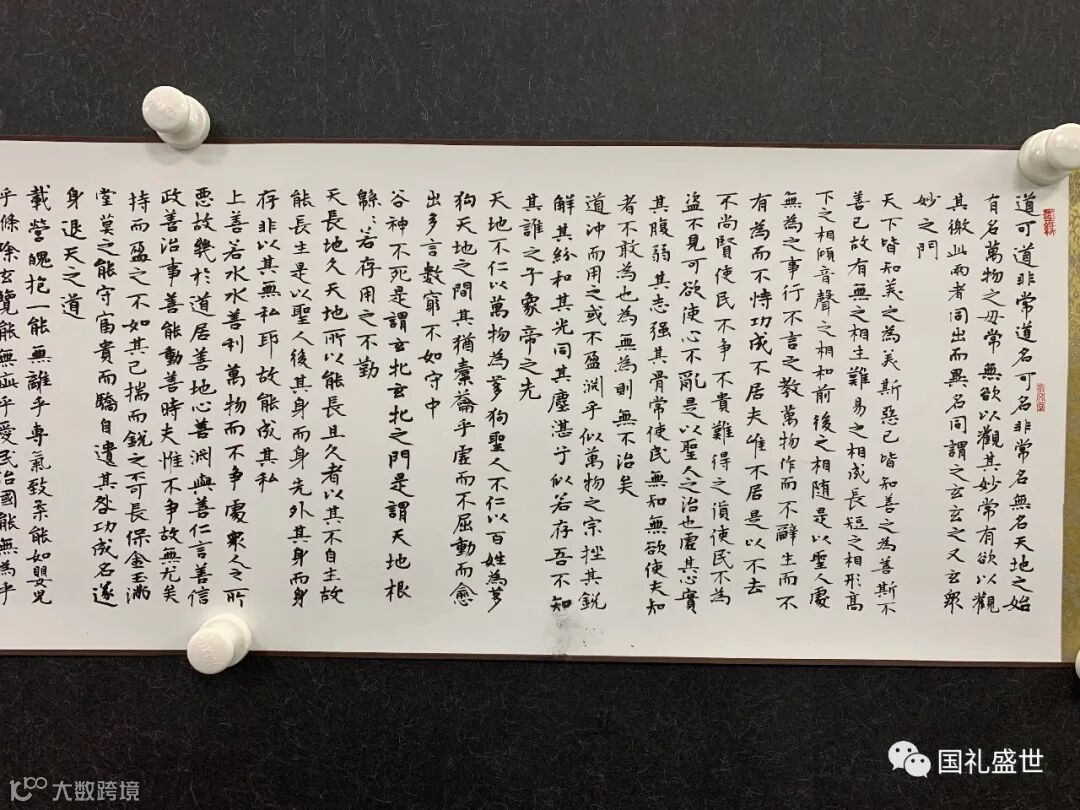 道可道非常道名可名非常名無名天地之始
有名萬物之毋常無欲以觀其妙常有欲以觀
其徼此兩者同出而異名同謂之玄玄之又玄眾
妙之門
天下皆知美之為美斯惡已皆知善之為善斯不
善已故有無之相生難易之相成長短之相形高
下之相傾音聲之相和前後之相隨是以聖人處
無為之事行不言之教萬物作而不辭生而不
有為而不恃功成不居夫唯不居是以不去
不尚賢使民不爭不貴難得之貨使民不為
盜不見可欲使心不亂是以聖人之治也虛其心實
其腹弱其志强其骨常使民無知無欲使夫知
者不敢為也為無為則無不治矣
道沖而用之或不盈淵乎似萬物之宗挫其銳
解其紛和其光同其塵湛兮似若存吾不知
其誰之子象帝之先
天地不仁以萬物為芻狗聖人不仁以百姓為芻
狗天地之間其猶橐籥乎虛而不屈動而愈
出多言數窮不如守中
谷神不死是謂玄牝玄牝之門是謂天地根
緜：若存用之不勤
天長地久天地所以能長且久者以其不自生故
能長生是以聖人後其身而身先外其身而身
存非以其無私耶故能成其私
上善若水水善利萬物而不爭處眾人之所
惡故幾於道居善地心善淵與善仁言善信
政善治事善能動善時夫惟不爭故無尤矣
持而盈之不如其已揣而銳之不可長保金玉滿
堂莫之能守富貴而驕自遺其咎功成名遂
身退天之道
載營魄抱一能無離乎專氣致柔能如嬰兒
乎滌除玄覽能無疵乎愛民治國能無為乎
国礼盛世
大数跨境